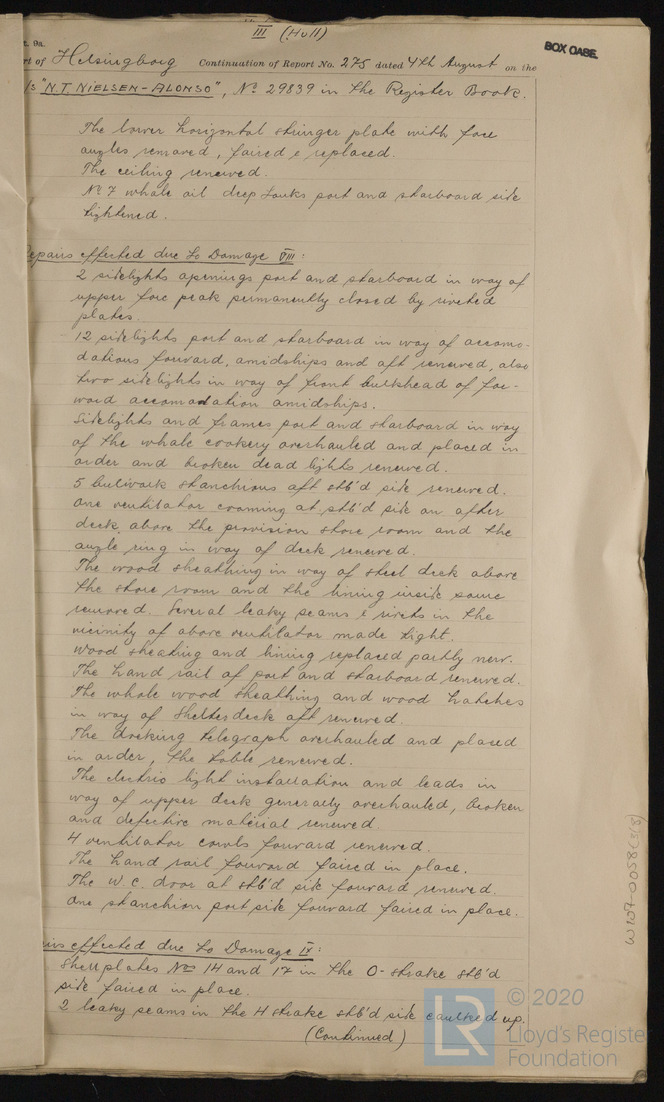 III (Hull)
. 9a.
BOX CASE.
rt of Helsingborg Continuation of Report No. 275 dated 4th August on the
/s "N.T. NIELSEN-ALONSO", No 29839 in the Register Book.
The lower horizontal stringer plate with face
angles removed, faired & replaced.
The ceiling renewed.
No 7 whale oil deep tanks port and starboard side
tightened.
epairs effected due to Damage VIII:
2 sidelights openings port and starboard in way of
upper fore peak permanently closed by riveted
plates.
12 sidelights port and starboard in way of accomo-
dations forward, amidships and aft renewed, also
two sidelights in way of front bulkhead of for-
ward accomodation amidships.
Sidelights and frames port and starboard in way
of the whale cookery overhauled and placed in
order and broken dead lights renewed.
5 bulwark stanchions aft stb'd side renewed.
One ventilator coaming at stb'd side on after
deck above the provision store room and the
angle ring in way of deck renewed.
The wood sheathing in way of steel deck above
the store room and the lining inside same
removed. Several leaky seams & rivets in the
vicinity of above ventilator made tight.
Wood sheating and lining replaced partly new.
The hand rail of port and starboard renewed.
The whole wood sheathing and wood hatches
in way of shelterdeck aft renewed.
The docking telegraph overhauled and placed
in order, the table renewed.
The electric light installation and leads in
way of upper deck generally overhauled, broken
and defective material renewed.
4 ventilator cowls forward renewed.
The hand rail forward faired in place.
The W.C. door at stb'd side forward renewed.
One stanchion port side forward faired in place.
irs effected due to Damage IX:
Shell plates Nos 14 and 17 in the O-strake stb'd
side faired in place.
2 leaky seams in the H strake stb'd side caulked up.
(Continued)
W107-0058(3/5)
LR
© 2020
Lloyd's Register
Foundation